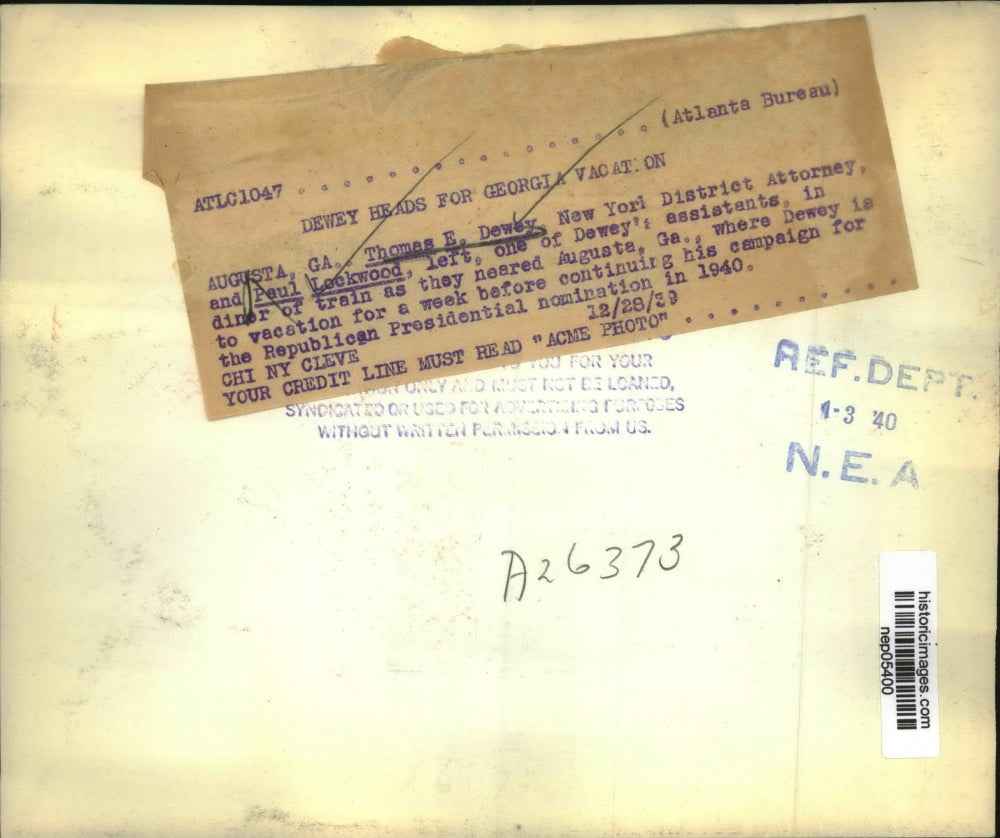 ATLC1047 . . . . . . . . . . . . . . . . . (Atlanta Bureau)
DEWEY HEADS FOR GEORGIA VACAT ON
AUGUSTA, GA.. Thomas E. Dewey, New York District Attorney,
and Paul Lockwood, left, one of Dewey's assistants, in
diner of train as they neared Augusta, Ga., where Dewey is
to vacation for a week before continuing his campaign for
the Republican Presidential nomination in 1940.
CHI NY CLEVE 12/28/39
YOUR CREDIT LINE MUST READ "ACME PHOTO" . . . . . . . . . .
TO YOU FOR YOUR
ONLY AND MUST NOT BE LOANED,
SYNDICATED OR USED FOR ADVERTISING PURPOSES
WITHOUT WRITTEN PERMISSION FROM US.
REF.DEPT.
1-3 '40
N.E.A
A26373
historicimages.com
nep05400